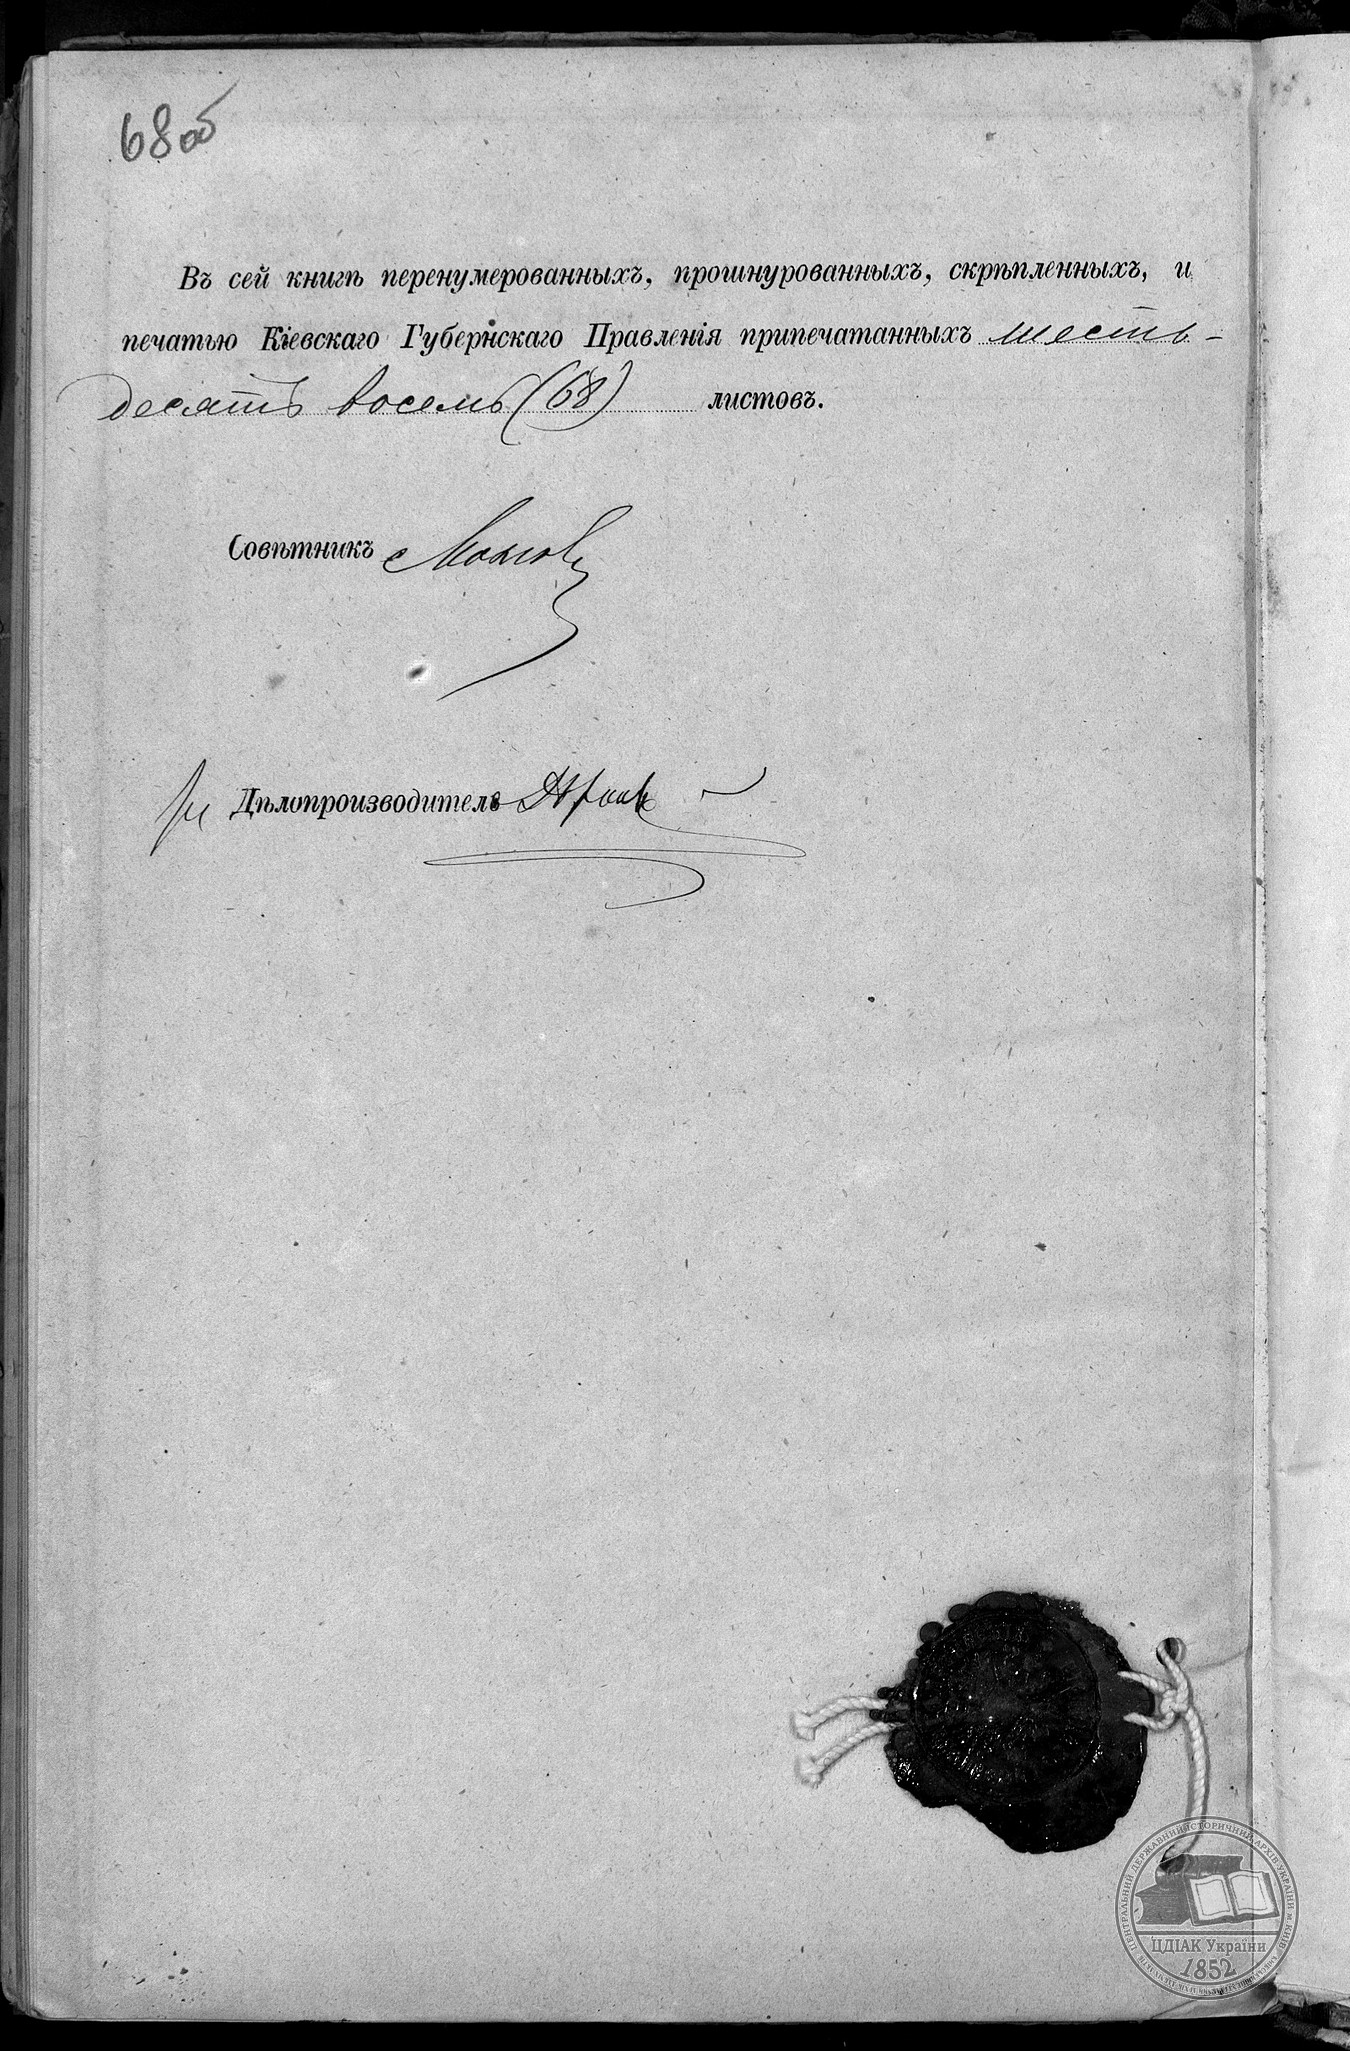 68 об
Въ сей книгѣ перенумерованныхъ, прошнурованныхъ, скрѣпленныхъ, и
печатью Кіевскаго Губернскаго Правленія припечатанныхъ шесть-
десятъ восемь (68) листовъ.
Совѣтникъ
Дѣлопроизводитель
ЦЕНТРАЛЬНИЙ ДЕРЖАВНИЙ ІСТОРИЧНИЙ АРХІВ УКРАЇНИ м. КИЇВ
ЦДІАК України
1852